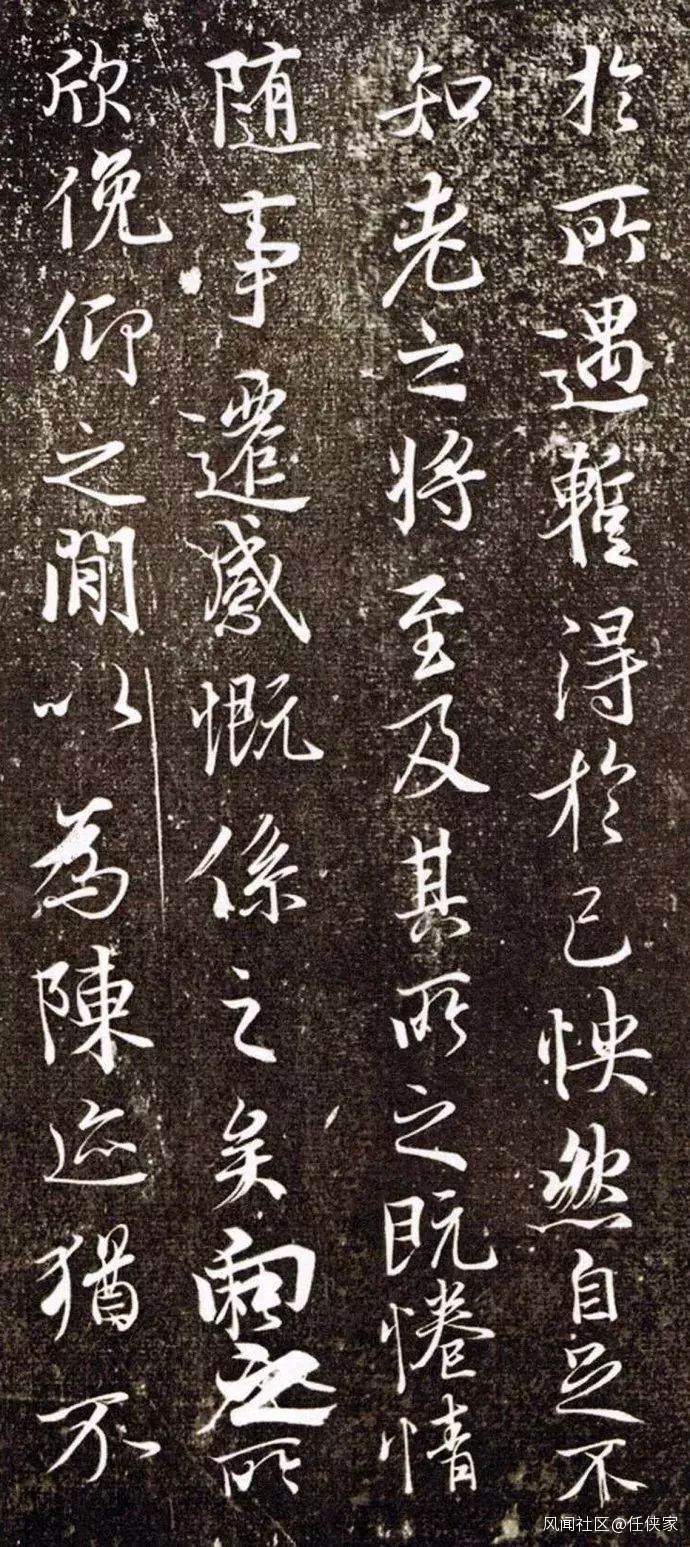 於所遇暫得於己怏然自足不
知老之將至及其所之既惓情
随事遷感慨係之矣向之所
欣俛仰之閒以為陳迹猶不
风闻社区@任侠家